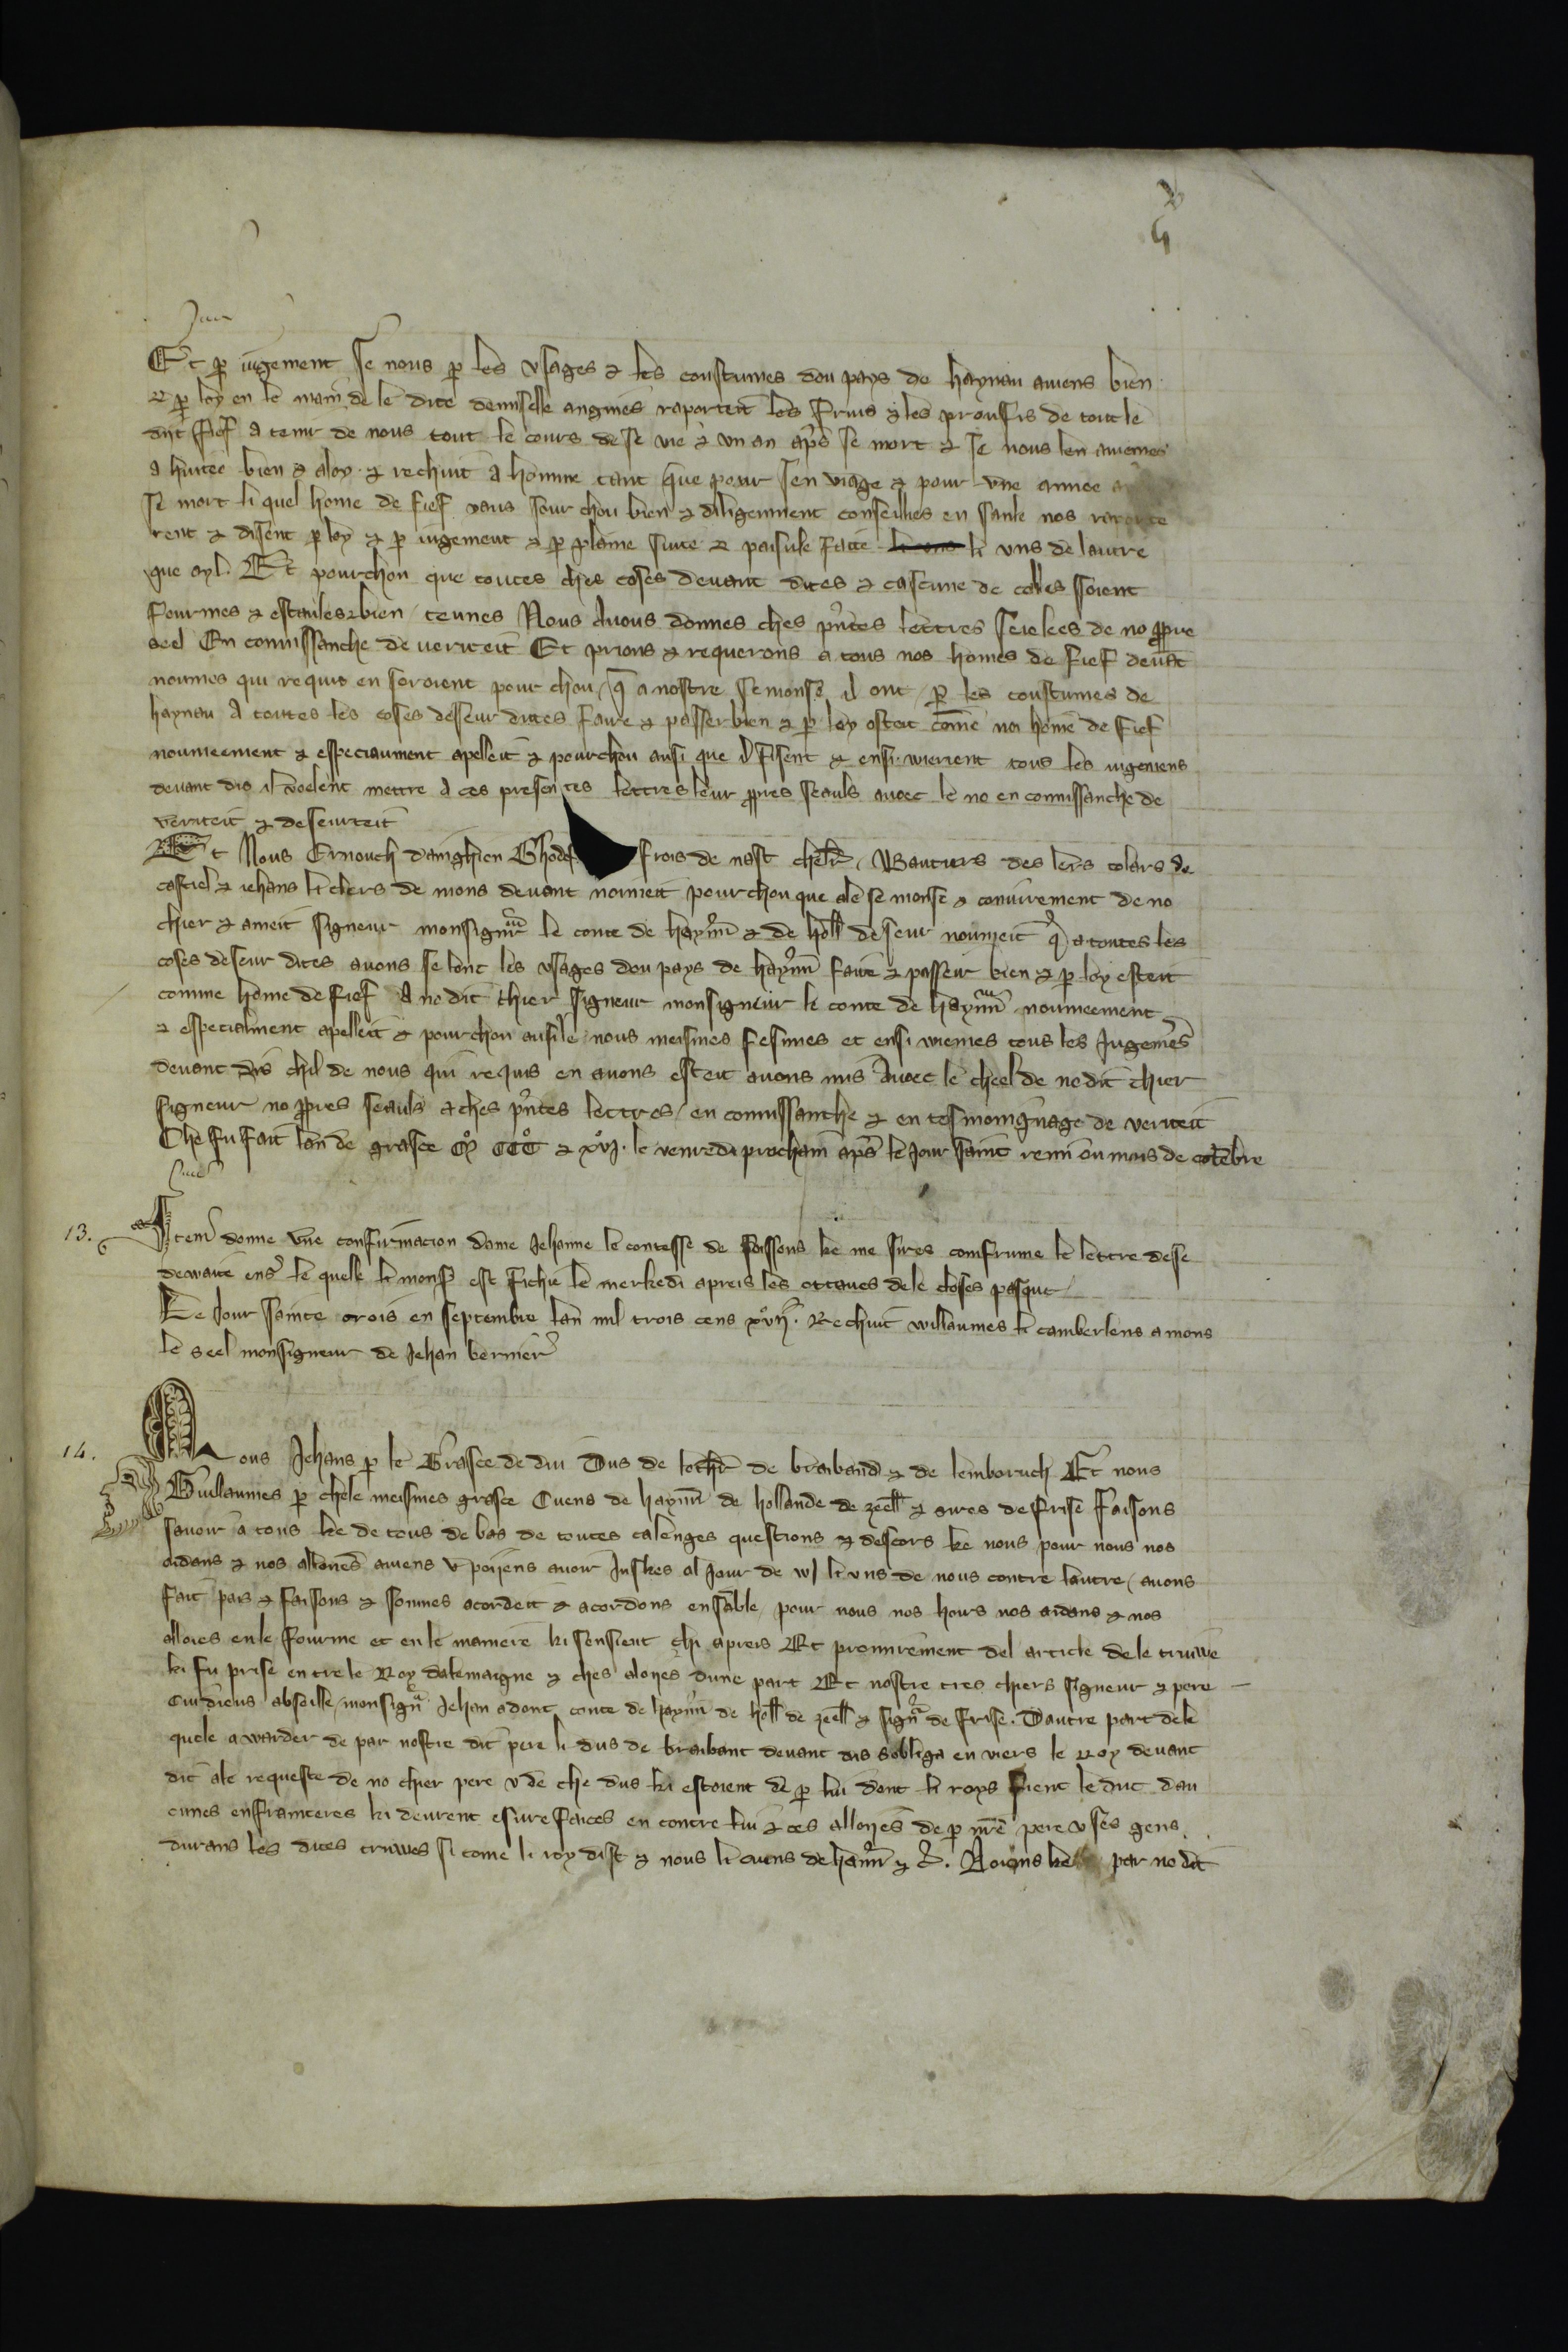 Et par iugement se nous par les vsages & les coustumes dou pays de haynau auiens bien
& par loy en le main de le dite demiselle angnies raporteit les fruis & les proufis de tout le
dit fief a tenir de nous tout le cours de se vie & vn an aps se mort & se nous len auiemes
a hiritee bien & a loy & rechuit a homme tant que pour sen viage & pour vne annee
se mort li quel home de fief vaus sour chou bien & diligenment conseillies en sanle nos raporte
rent & disent par loy & par iugement & par plaine siute & paisule faite li vns de lautre
que oyl. Et pourchou que toutes ches coses deuant dites & cascune de celles soient
fourmes & estaules & bien tenues Nous Auons donnes ches pntes lettres seielees de no propre
seel En connissanche de veriteit Et prions & requerons a tous nos homes de fief deuant
noumes qui requis en seroient pour chou q a nostre semonse il ont par les coustumes de
haynau A toutes les coses deseur dites faire & passer bien & par loy esteit come no home de fief
noumeement & especiaument apelleit & pourchou ausi que il fisent & ensi wierent tous les iugemens
deuant dis il voelent mettre a ces presentes lettres leur propres seauls auoec le no en connissanche de
veriteit & de seurteit
Et Nous Ernouch dainghien Ghodefrois de nast cheler Wautiers des lers colars de
castiel & iehans li clers de mons deuant nomeit pourchou que ale semonse & coniurement de no
chier & ameit signeur monsignr le conte de haynn & de holl deseur noumeit q a toutes les
coses deseur dites auons se lonc les vsages dou pays de haynn faire & passeir bien & par loy esteit
comme home de fief A no dit chier signeur monsigneur le conte de haynn noumeement
& especialment apelleit & pourchou ausi ke nous meismes fesimes et ensi wiemes tous les Jugemens
deuant dis chil de nous qui requis en auons esteit auons mis Auoec le cheel de no dit chier
signeur no propres seauls a ches pntes lettres en connissanche & en tesmoingnage de veriteit
Che fu fait lan de grasce M CCC & xvj. le venredi prochain aps le Jour saint remi ou mois de octembre
13. Item donne vne confirmacion dame Jehanne le contesse de soissons ke me sires confrume le lettre de se
dewaire ens le quelle li mons est fichie le merkedi apreis les ottaues dele closes pasque
Le Jour sainte crois en septembre lan mil trois cens xvij. Rechuit willaumes li camberlens a mons
le seel monsigneur de Jehan bernier
14. Nous Jehans par le Grasce de diu Dus de lothr de braibant & de lemboruch Et nous
Guillaumes par chele meismes grasce Cuens de haynn de hollande de zeell & sires de frise Faisons
sauoir a tous ke de tous debas de toutes calenges questions & descors ke nous pour nous nos
aidans & nos alloijes auiens v poijens auoir Juskes al Jour de wj li vns de nous contre lautre auons
fait pais & faisons & sommes acordeit & acordons ensamble pour nous nos hoirs nos aidans & nos
alloies en le fourme et en le maniere ki sensient chi apreis Et premirement del article de le triuwe
ki fu prise entre le Roy dalemaigne & ches aloijes dune part Et nostre tres chiers signeur & pere
cui dieus absoille monsignr Jehan adont conte de haynn de holl de zeell & signr de frise. Dautre part dele
quele a warder de par nostre dit pere li dus de braibant deuant dis sobliga en viers le Roy deuant
dit ale requeste de no chier pere v de che dus ki estoient de par lui dont li roys sieut le duc dau
cunes enfrainteres ki deurent estre faites en contre lui & ces alloijes de par nre pere v ses gens
durans les dites triuwes si come li roy dist & nous li cuens de haynn & c. Noions ke par no dit